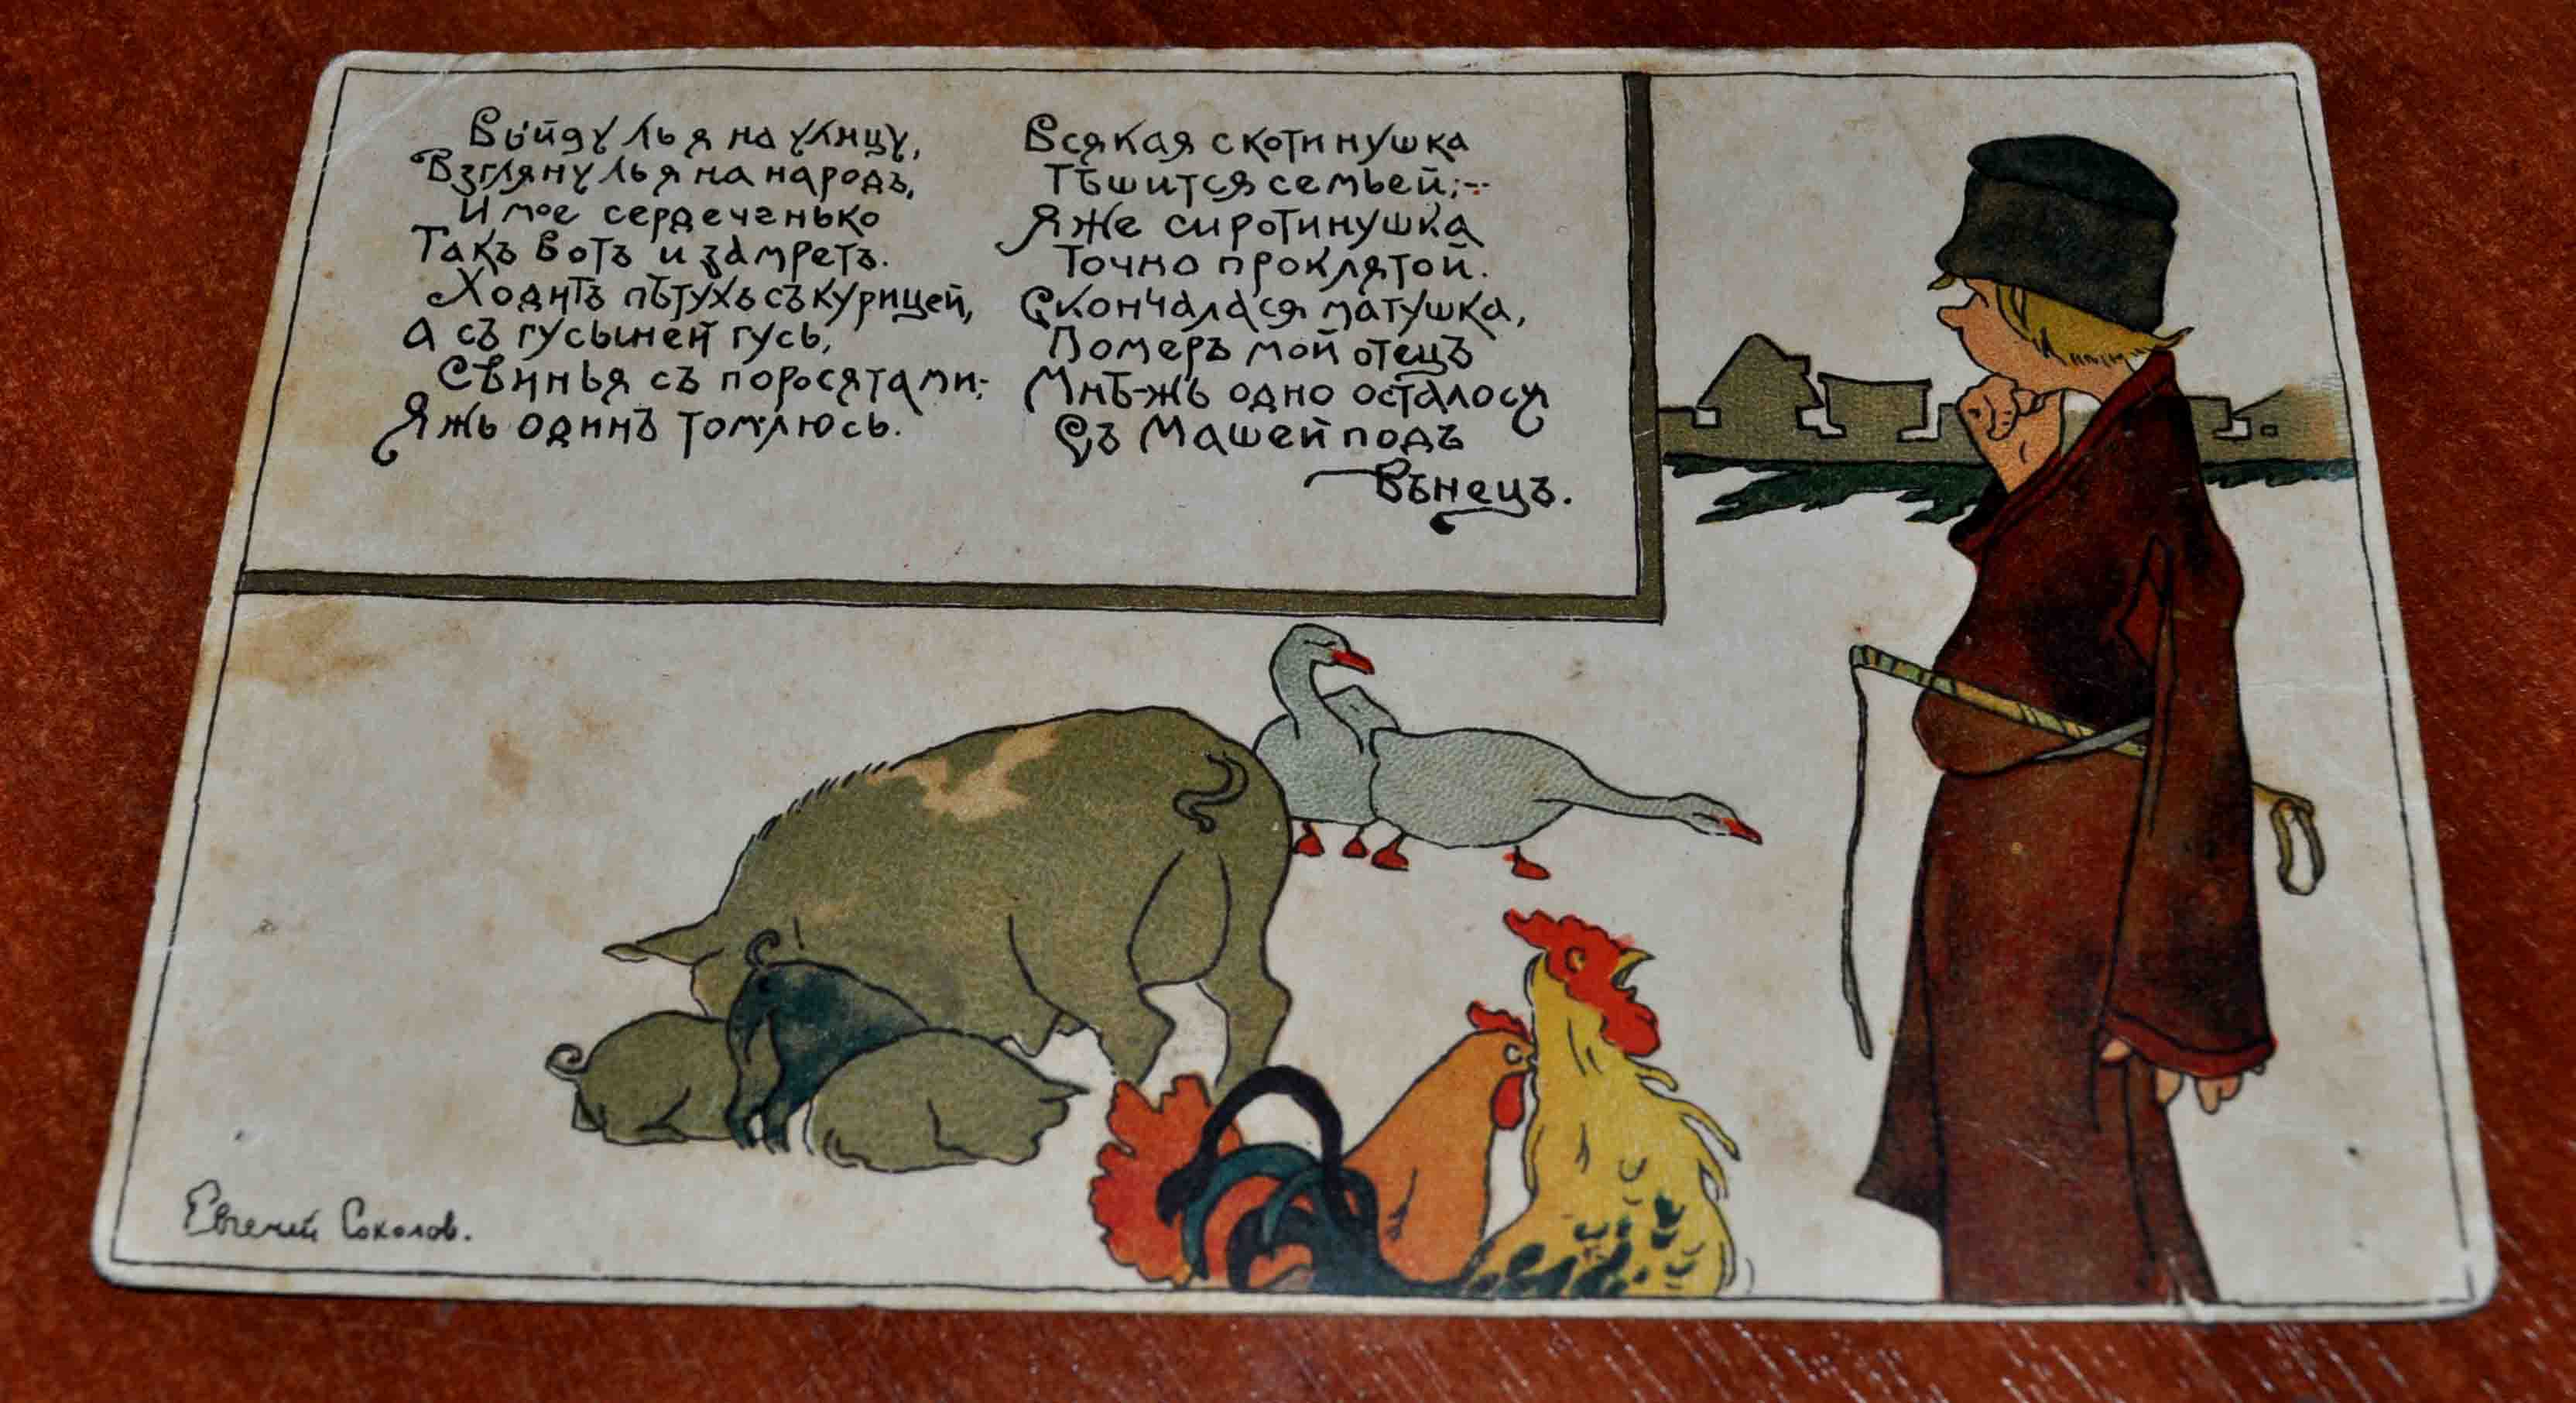 Выйду ль я на улицу,
Взгляну ль я на народъ,
И мое сердеченько
Такъ вотъ и замретъ.
Ходитъ пѣтухъ съ курицей,
А съ гусыней гусь,
Свинья съ поросятами;-
Я жь одинъ томлюсь.
Всякая скотинушка
Тѣшится семьей;--
Я же сиротинушка
Точно проклятой.
Скончалася матушка,
Померъ мой отецъ
Мнѣ-жь одно осталося
Съ Машей подъ
вѣнецъ.
Евгений Соколов.